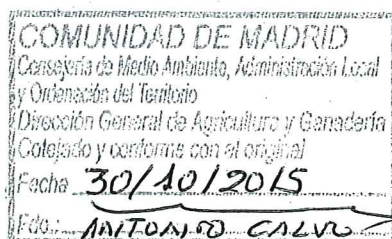 COMUNIDAD DE MADRID
Consejería de Medio Ambiente, Administración Local
y Ordenación del Territorio
Dirección General de Agricultura y Ganadería
Cotejado y conforme con el original
Fecha 30/10/2015
Fdo.: ANTONIO CALVO